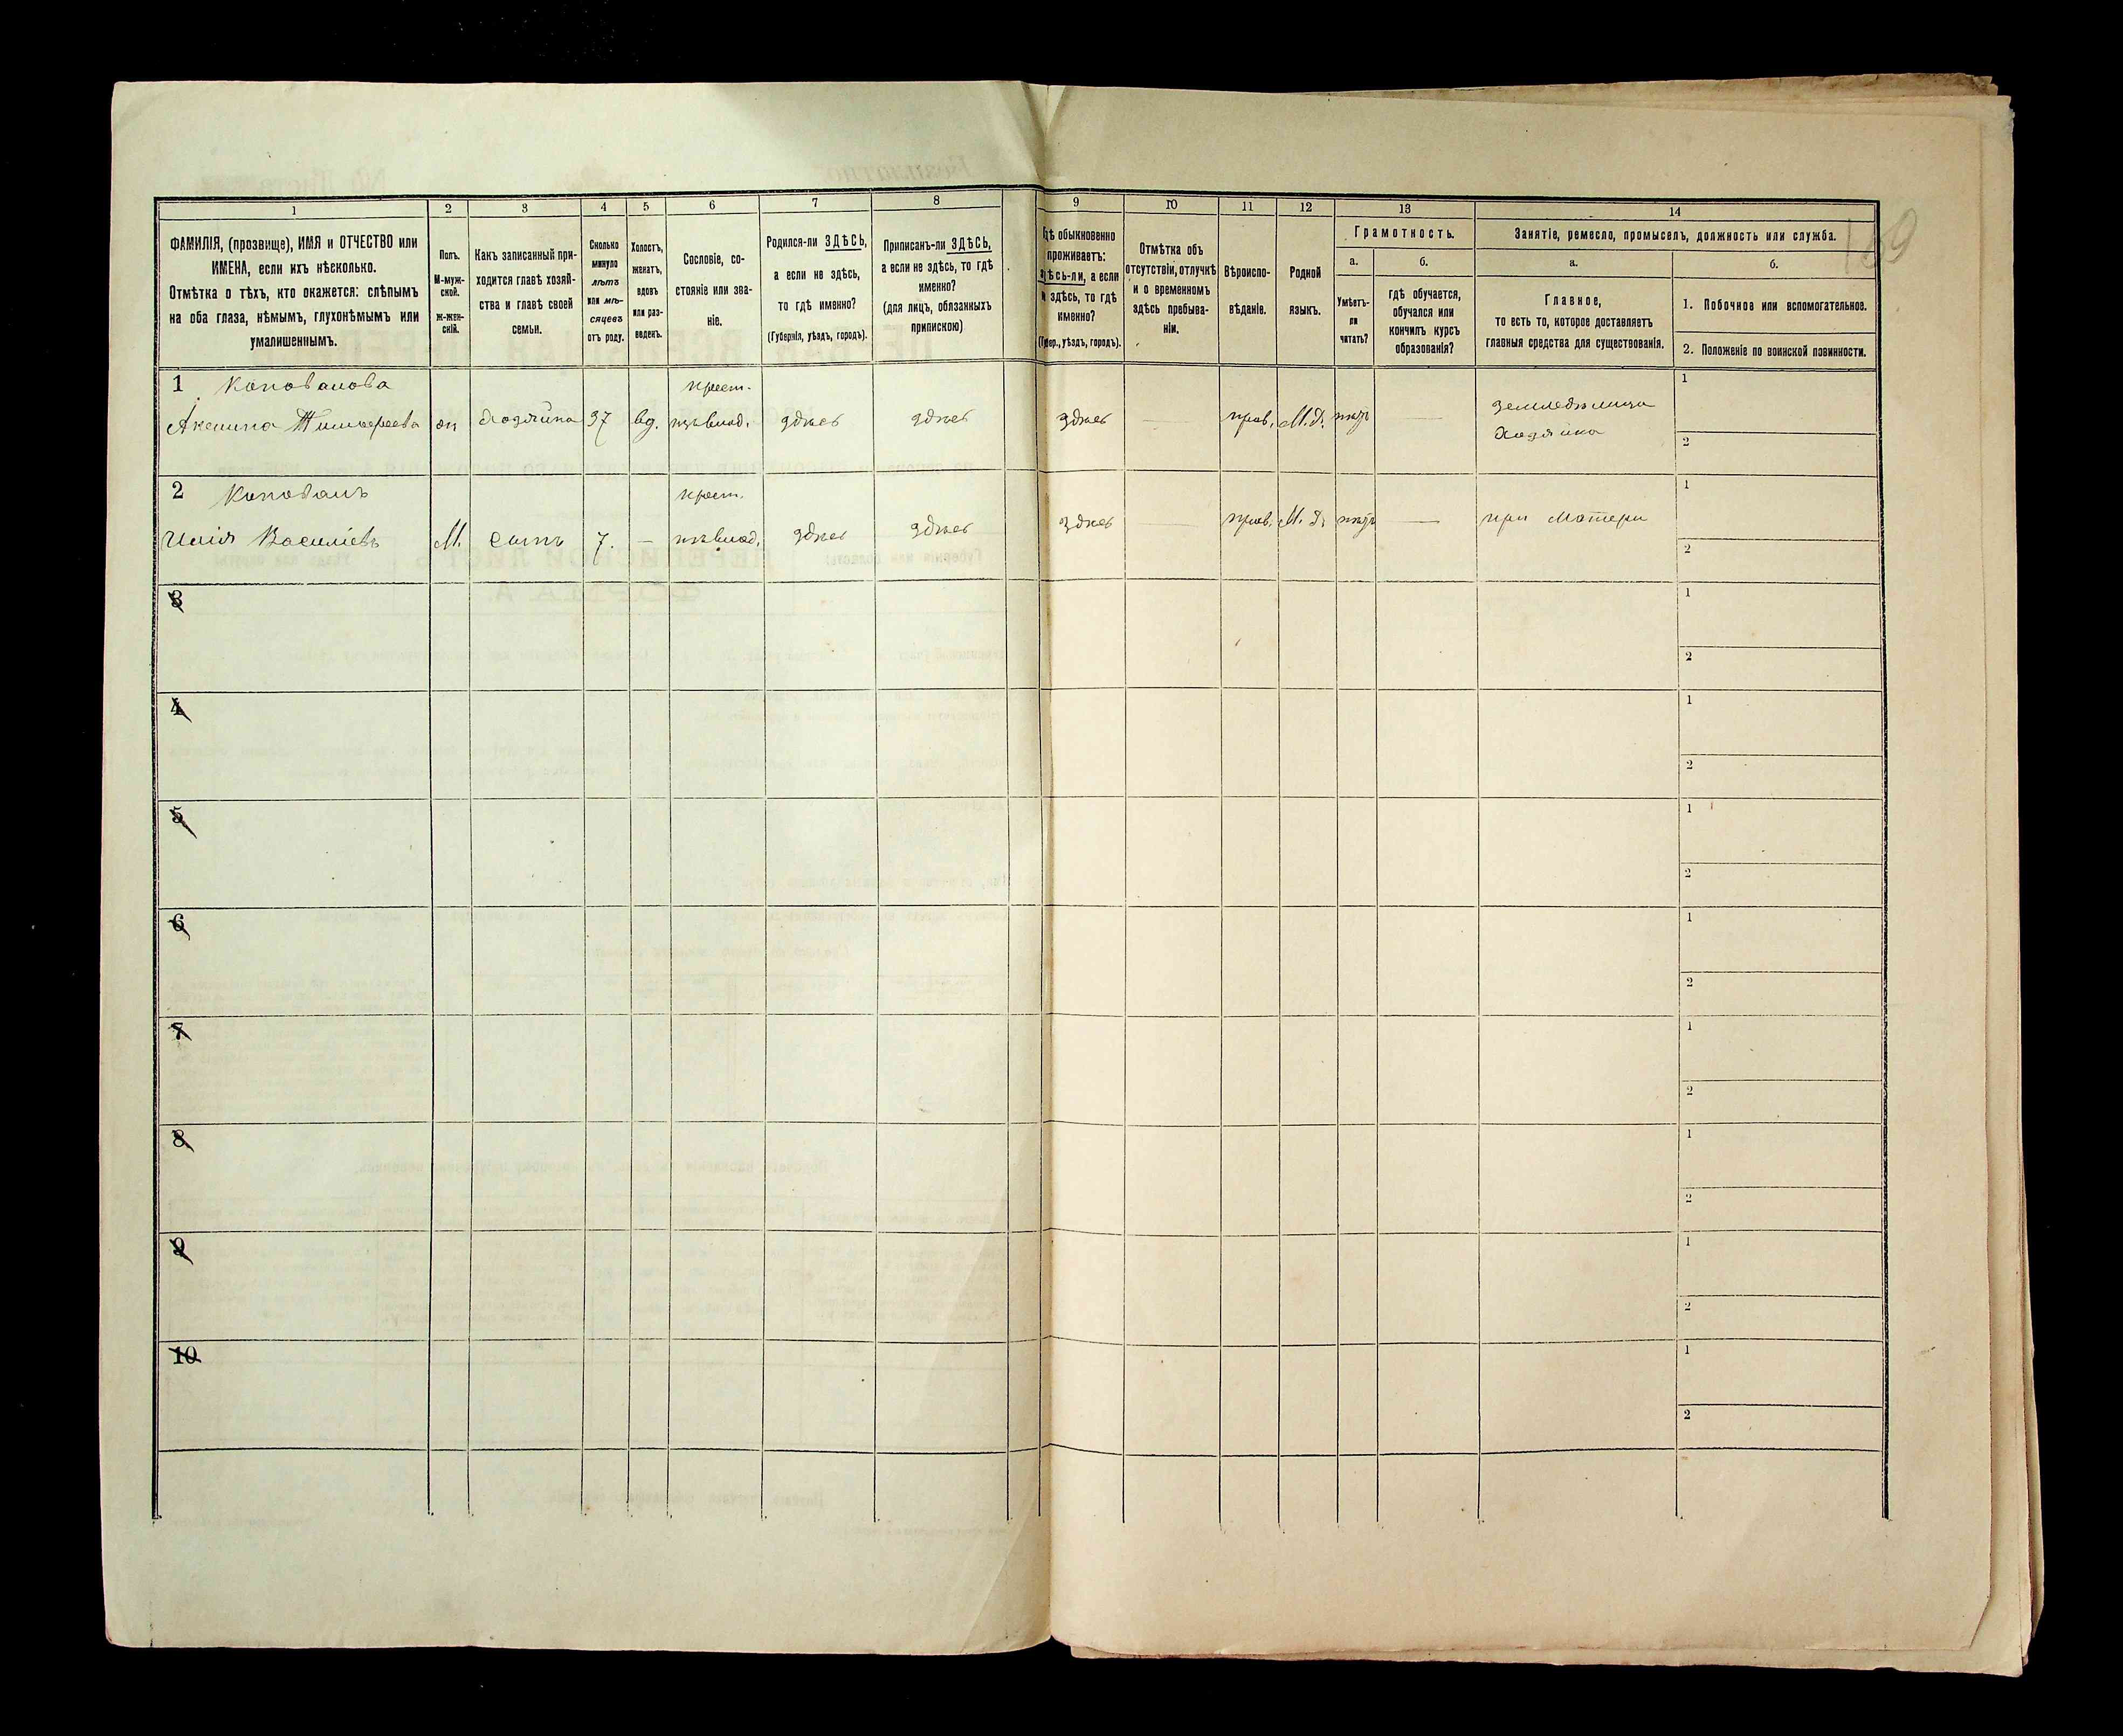 159
1
2
3
4
5
6
7
8
9
10
11
12
13
14
ФАМИЛІЯ, (прозвище), ИМЯ и ОТЧЕСТВО или
ИМЕНА, если ихъ нѣсколько.
Отмѣтка о тѣхъ, кто окажется: слѣпымъ
на оба глаза, нѣмымъ, глухонѣмымъ или
умалишеннымъ.
Полъ.
М-муж-
ской.
ж-жен-
скій.
Какъ записанный при-
ходится главѣ хозяй-
ства и главѣ своей
семьи.
Сколько
минуло
лѣтъ
или мѣ-
сяцевъ
отъ роду.
Холостъ,
женатъ,
вдовъ
или раз-
веденъ.
Сословіе, со-
стояніе или зва-
ніе.
Родился-ли ЗДѢСЬ,
а если не здѣсь,
то гдѣ именно?
(Губернія, уѣздъ, городъ).
Приписанъ-ли ЗДѢСЬ,
а если не здѣсь, то гдѣ
именно?
(для лицъ, обязанныхъ
припискою)
Гдѣ обыкновенно
проживаетъ:
здѣсь-ли, а если
не здѣсь, то гдѣ
именно?
(Губер., уѣздъ, городъ).
Отмѣтка объ
отсутствіи, отлучкѣ
и о временномъ
здѣсь пребыва-
ніи.
Вѣроиспо-
вѣданіе.
Родной
языкъ.
Грамотность.
а.
Умѣетъ-
ли
читать?
б.
гдѣ обучается,
обучался или
кончилъ курсъ
образованія?
Занятіе, ремесло, промыселъ, должность или служба.
а.
Главное,
то есть то, которое доставляетъ
главныя средства для существованія.
б.
1. Побочное или вспомогательное.
2. Положеніе по воинской повинности.
1 Коповалова
Акилина Тимофеева
ж
хозяйка
37
вд.
крест.
изъ влад.
здѣсь
здѣсь
здѣсь
—
прав.
М.д.
нѣтъ
—
земледѣлица
хозяйка
1
2
2 Коповалъ
Илія Василіевъ
М.
сынъ
7.
—
крест.
изъ влад.
здѣсь
здѣсь
здѣсь
—
прав.
М.д.
нѣтъ
—
при Матери
1
2
3
1
2
4
1
2
5
1
2
6
1
2
7
1
2
8
1
2
9
1
2
10
1
2